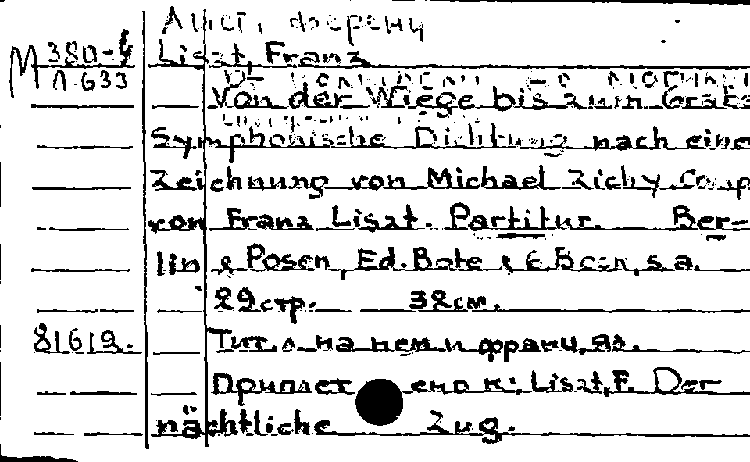 Лист, Ференц
М 380-4 Liszt, Franz
Л-633
Von der Wiege bis zum Grabe
Symphonische Dichtung nach eine
Zeichnung von Michael Zichy. Comp
von Franz Liszt. Partitur. Ber-
lin & Posen, Ed. Bote & G. Bock, s.a.
29 стр. 32 см.
81612. Тит. л. на нем. и франц. яз.
Приплетено к: Liszt, F. Der
nächtliche Zug.